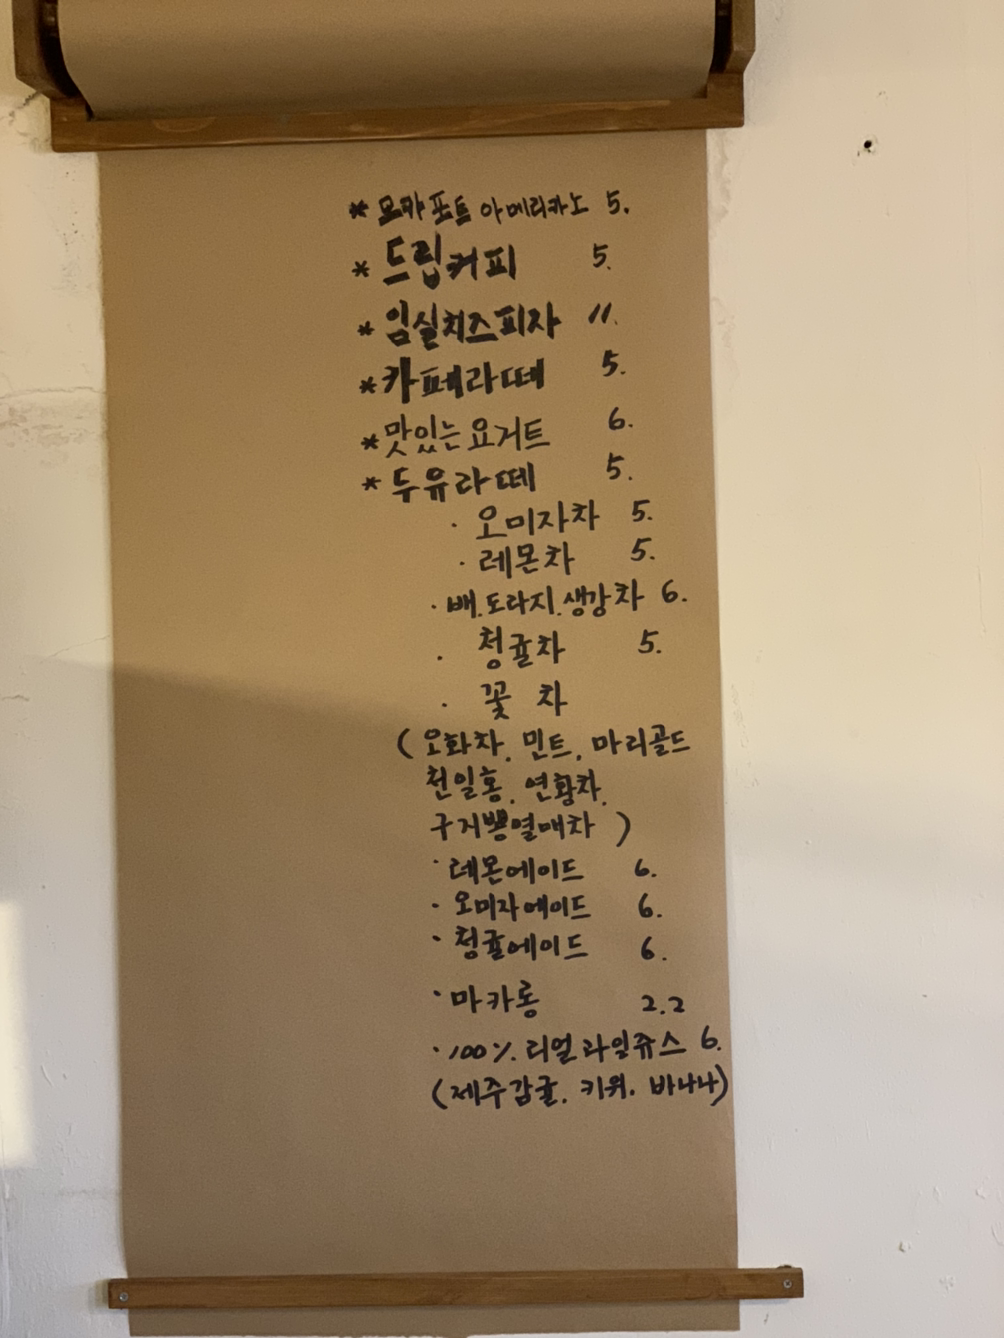 * 모카포트 아메리카노 5.
* 드립커피 5.
* 임실치즈피자 11.
* 카페라떼 5.
* 맛있는 요거트 6.
* 두유라떼 5.
· 오미자차 5.
· 레몬차 5.
· 배.도라지.생강차 6.
· 청귤차 5.
· 꽃 차
( 오화차, 민트, 마리골드
천일홍, 연황차,
구지뽕열매차 )
· 레몬에이드 6.
· 오미자에이드 6.
· 청귤에이드 6.
· 마카롱 2.2
· 100%. 리얼과일쥬스 6.
(제주감귤, 키위, 바나나)